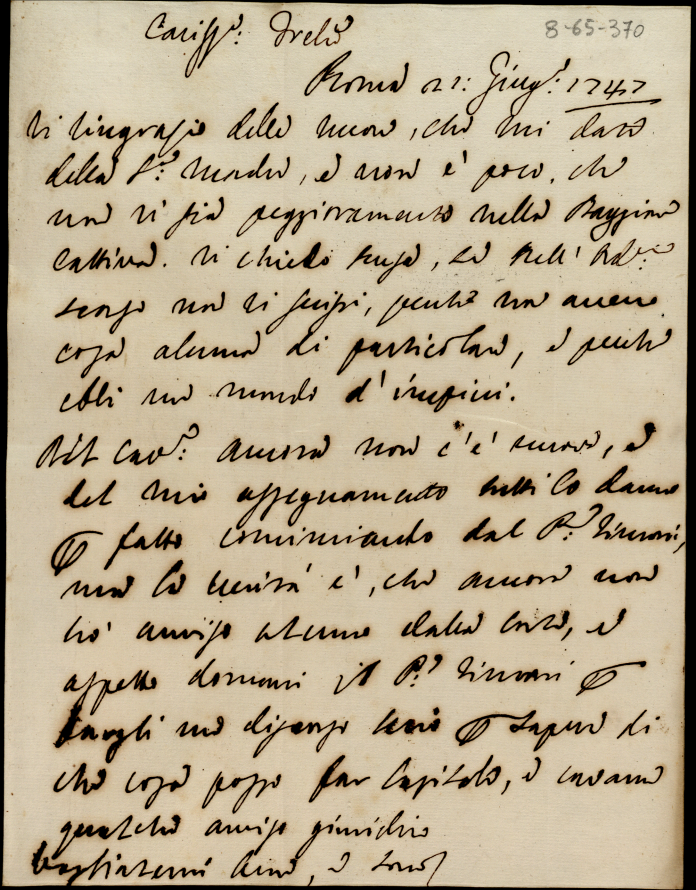 8-65-370
Cariss.º Frello
Roma 21: Giug.º 1747
Vi ringrazio delle nuove, che mi date
della S.ª Madre, e non è poco, che
non vi sia peggioramento nella stagione
cattiva. Vi chiedo scusa, se nell' Ord.º
scorso non vi scrissi, perche non avevo
cosa alcuna di particolare, e perche
ebbi un mondo d'impicci.
Del Cav.º ancora non c'è nuova, e
del mio assegnamento tutti lo danno
ꝑ fatto cominciando dal P.º
ma la verità è, che ancora non
hò avviso alcuno dalla Corte, e
aspetto domani il P.º ꝑ
fargli un discorso serio ꝑ sapere di
che cosa posso far Capitale, e cavarne
qualche avviso giuridico
vogliatemi bene, e sono